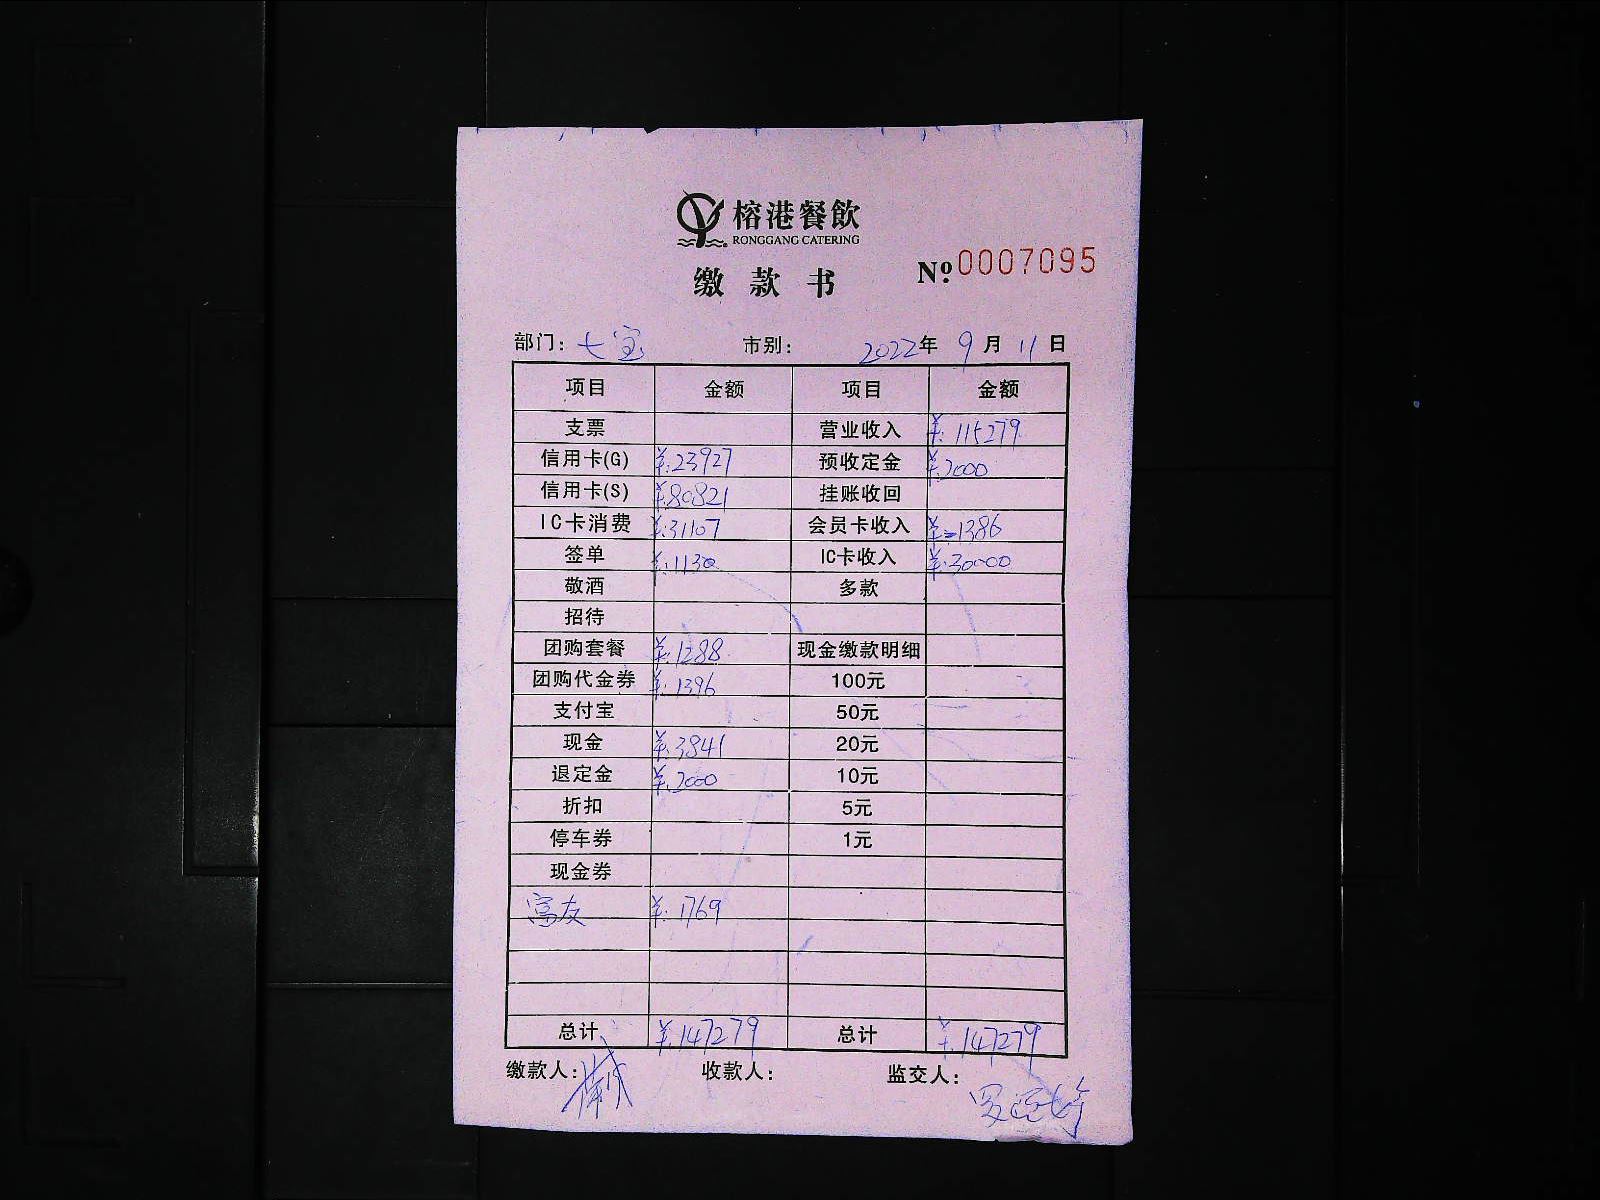 榕港餐飲
RONGGANG CATERING
缴款书 № 0007095
部门: 七宝 市别: 2022年 9月 11日
项目 金额 项目 金额
支票 营业收入 ¥:115279
信用卡(G) ¥:23927 预收定金 ¥:2000
信用卡(S) ¥:80821 挂账收回
IC卡消费 ¥:31107 会员卡收入 ¥:1386
签单 ¥:1130 IC卡收入 ¥:30000
敬酒 多款
招待
团购套餐 ¥:1288 现金缴款明细
团购代金券 ¥:1396 100元
支付宝 50元
现金 ¥:3841 20元
退定金 ¥:2000 10元
折扣 5元
停车券 1元
现金券
富友 ¥:1769
总计 ¥:147279 总计 ¥:147279
缴款人: 收款人: 监交人: